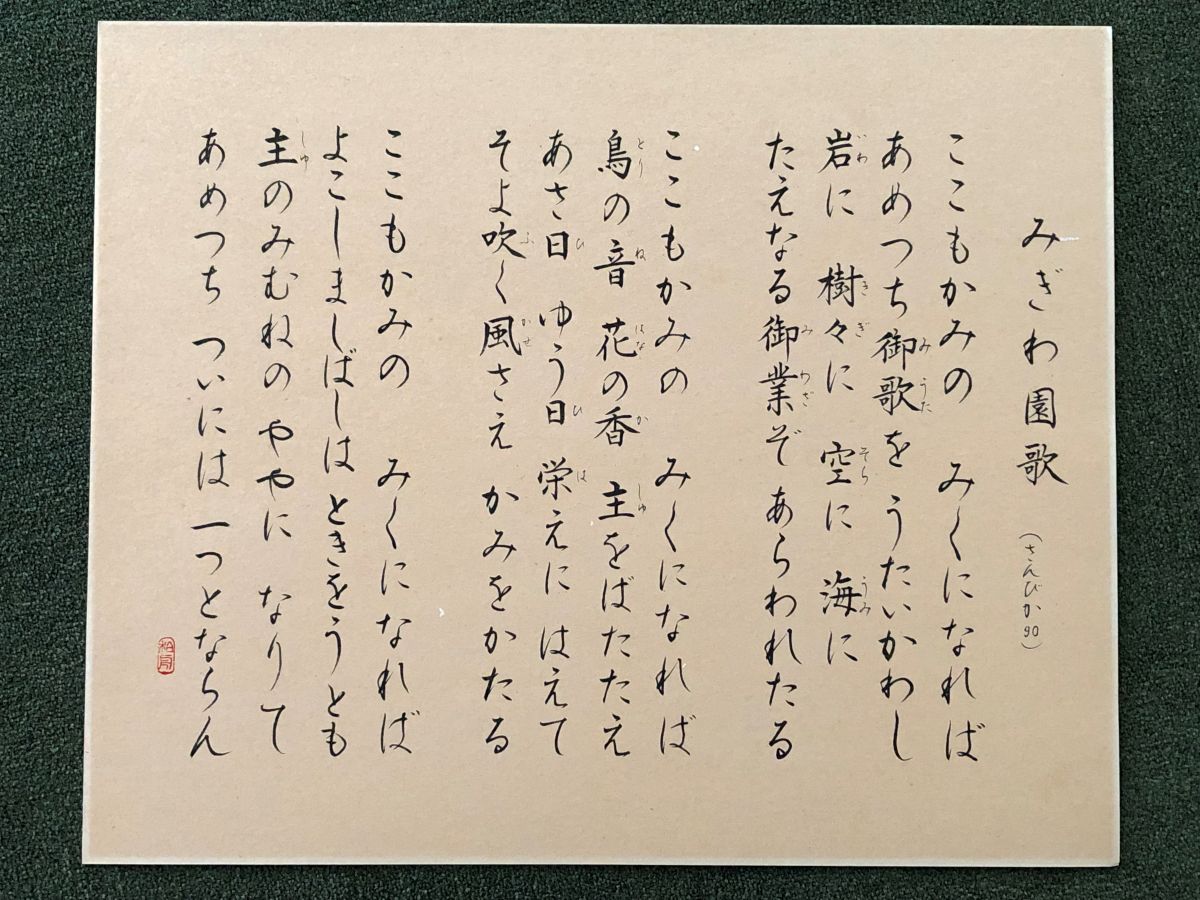 みぎわ園歌 (さんびか90)
ここもかみの みくになれば
あめつち御歌を うたいかわし
岩に 樹々に 空に 海に
たえなる御業ぞ あらわれたる
ここもかみの みくになれば
鳥の音 花の香 主をばたたえ
あさ日 ゆう日 栄えに はえて
そよ吹く風さえ かみをかたる
ここもかみの みくになれば
よこしましばしは ときをうとも
主のみむねの ややに なりて
あめつち ついには 一つとならん